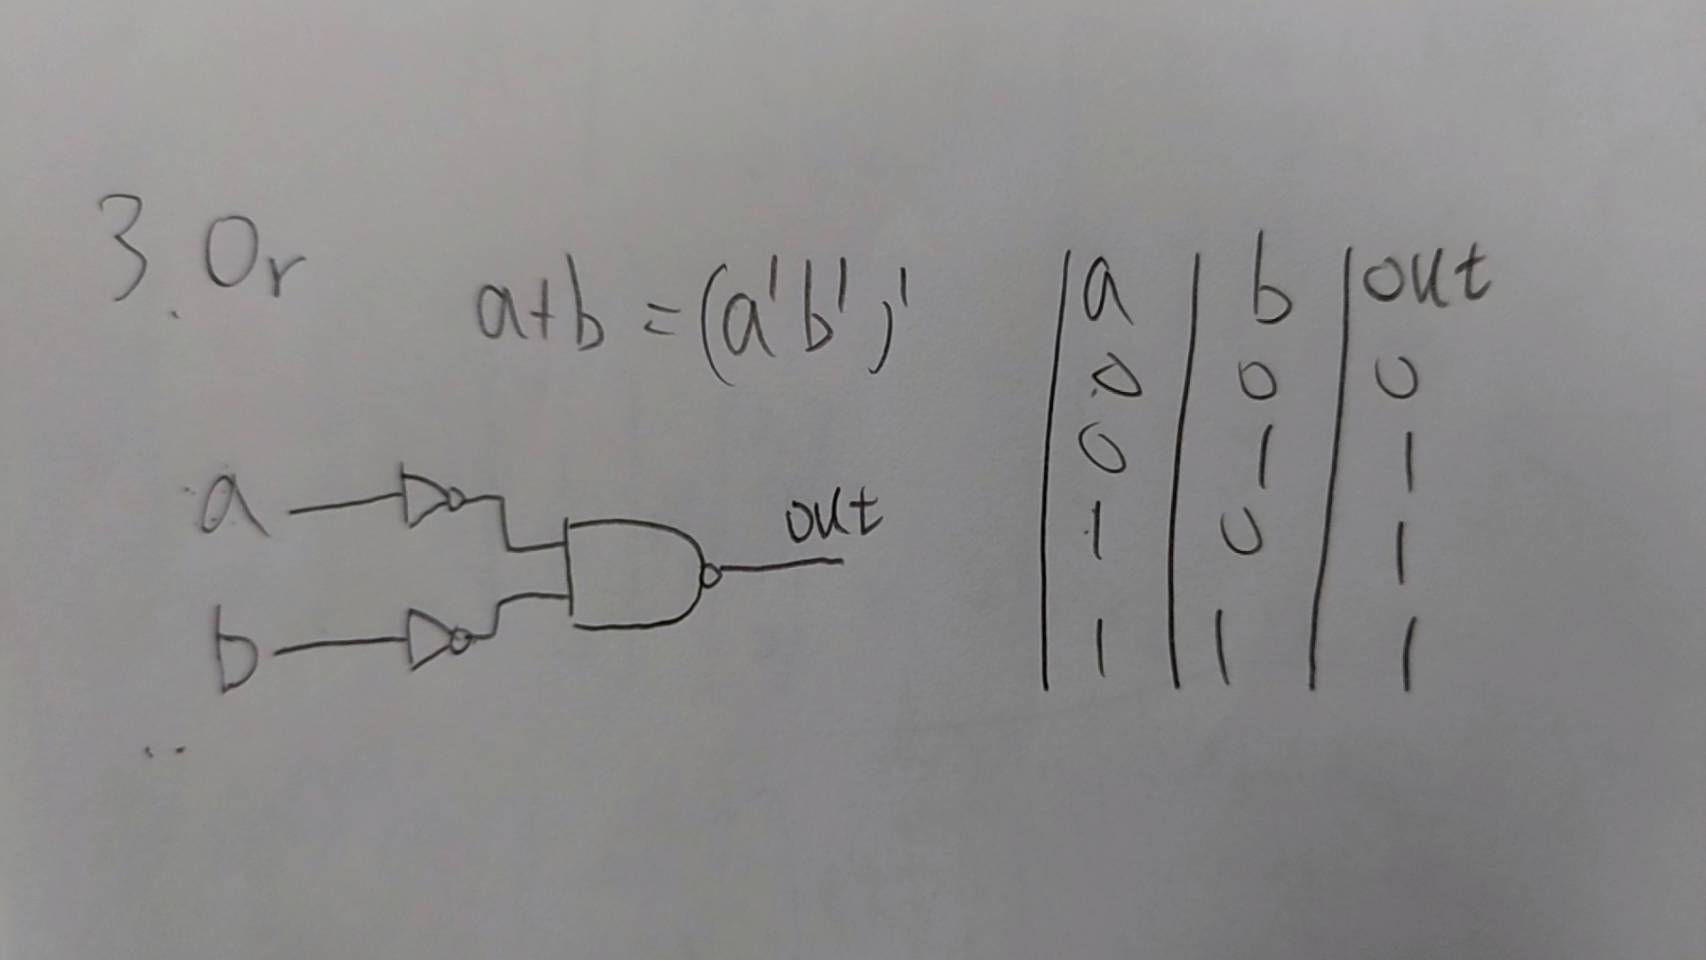 3. Or
a+b = (a'b')'
a
b
out
a b out
0 0 0
0 1 1
1 0 1
1 1 1